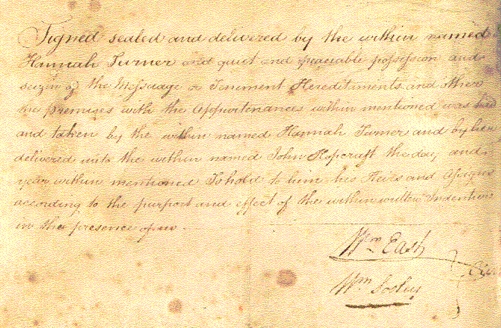 Signed sealed and delivered by the within named
Hannah Turner and quiet and peaceable possession and
seizin of the Messuage or Tenement Hereditaments and other
the premises with the Appurtenances within mentioned was had
and taken by the within named Hannah Turner and by her
delivered unto the within named John Hopcraft the day and
year within mentioned To hold to him his Heirs and Assigns
according to the purport and effect of the within written Indenture
in the presence of us.
Wm East
Wm